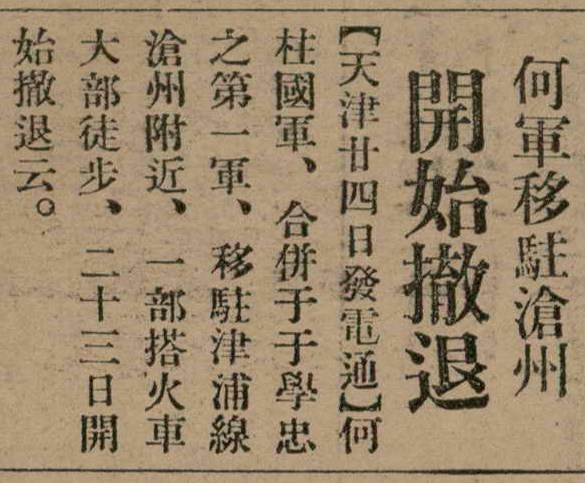 何軍移駐滄州
開始撤退
【天津廿四日發電通】何
柱國軍、合併于于學忠
之第一軍、移駐津浦線
滄州附近、一部搭火車
大部徒步、二十三日開
始撤退云。